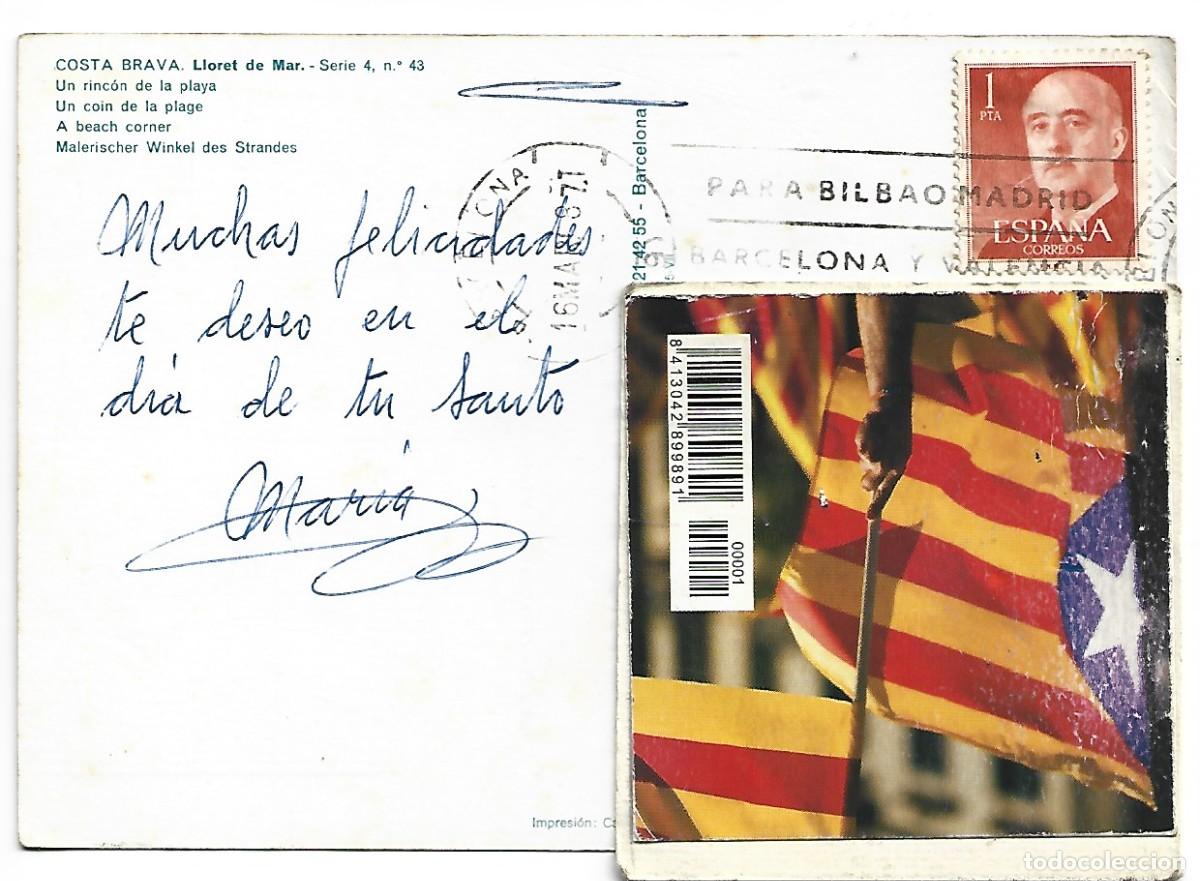 COSTA BRAVA. Lloret de Mar. - Serie 4, n.º 43
Un rincón de la playa
Un coin de la plage
A beach corner
Malerischer Winkel des Strandes
Muchas felicidades
te deseo en el
día de tu santo
María
1 PTA
ESPAÑA
CORREOS
PARA BILBAO MADRID
BARCELONA Y VALENCIA
16 MAR
21 42 55 - Barcelona
8 413042 899891
00001
Impresión:
todocoleccion